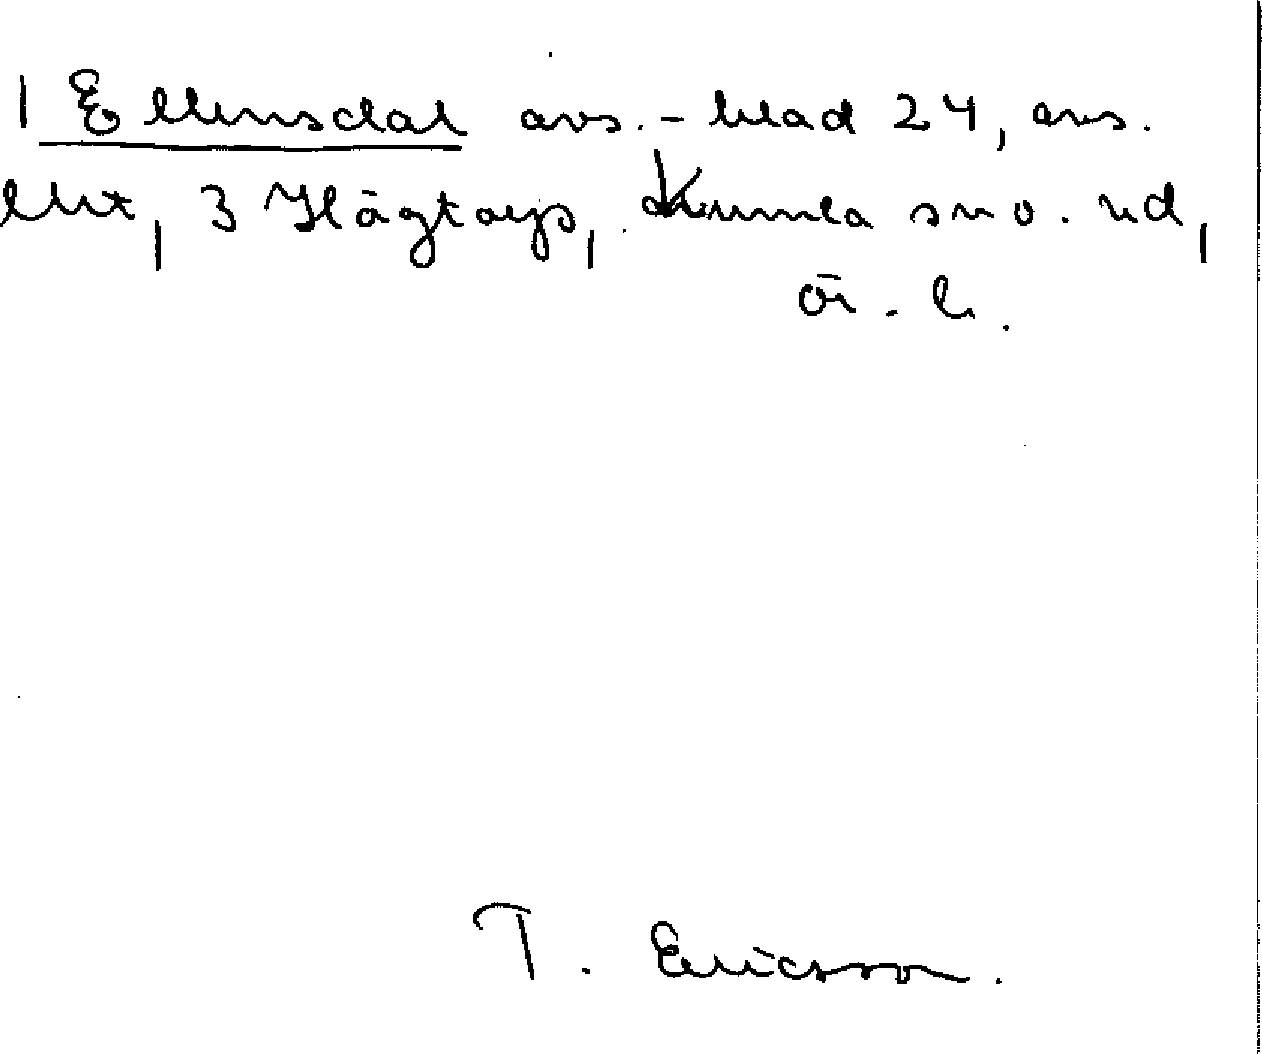 1 Ellensdal avs. - blad 24, avs.
3 Hägtorps, Kumla sn o. hd,
ör. l.
T. Ericsson.